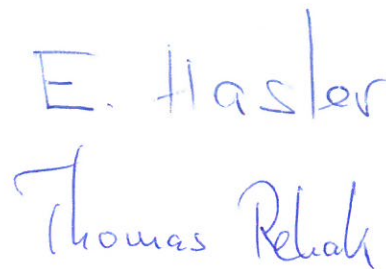 E. Hasler
Thomas Rehak